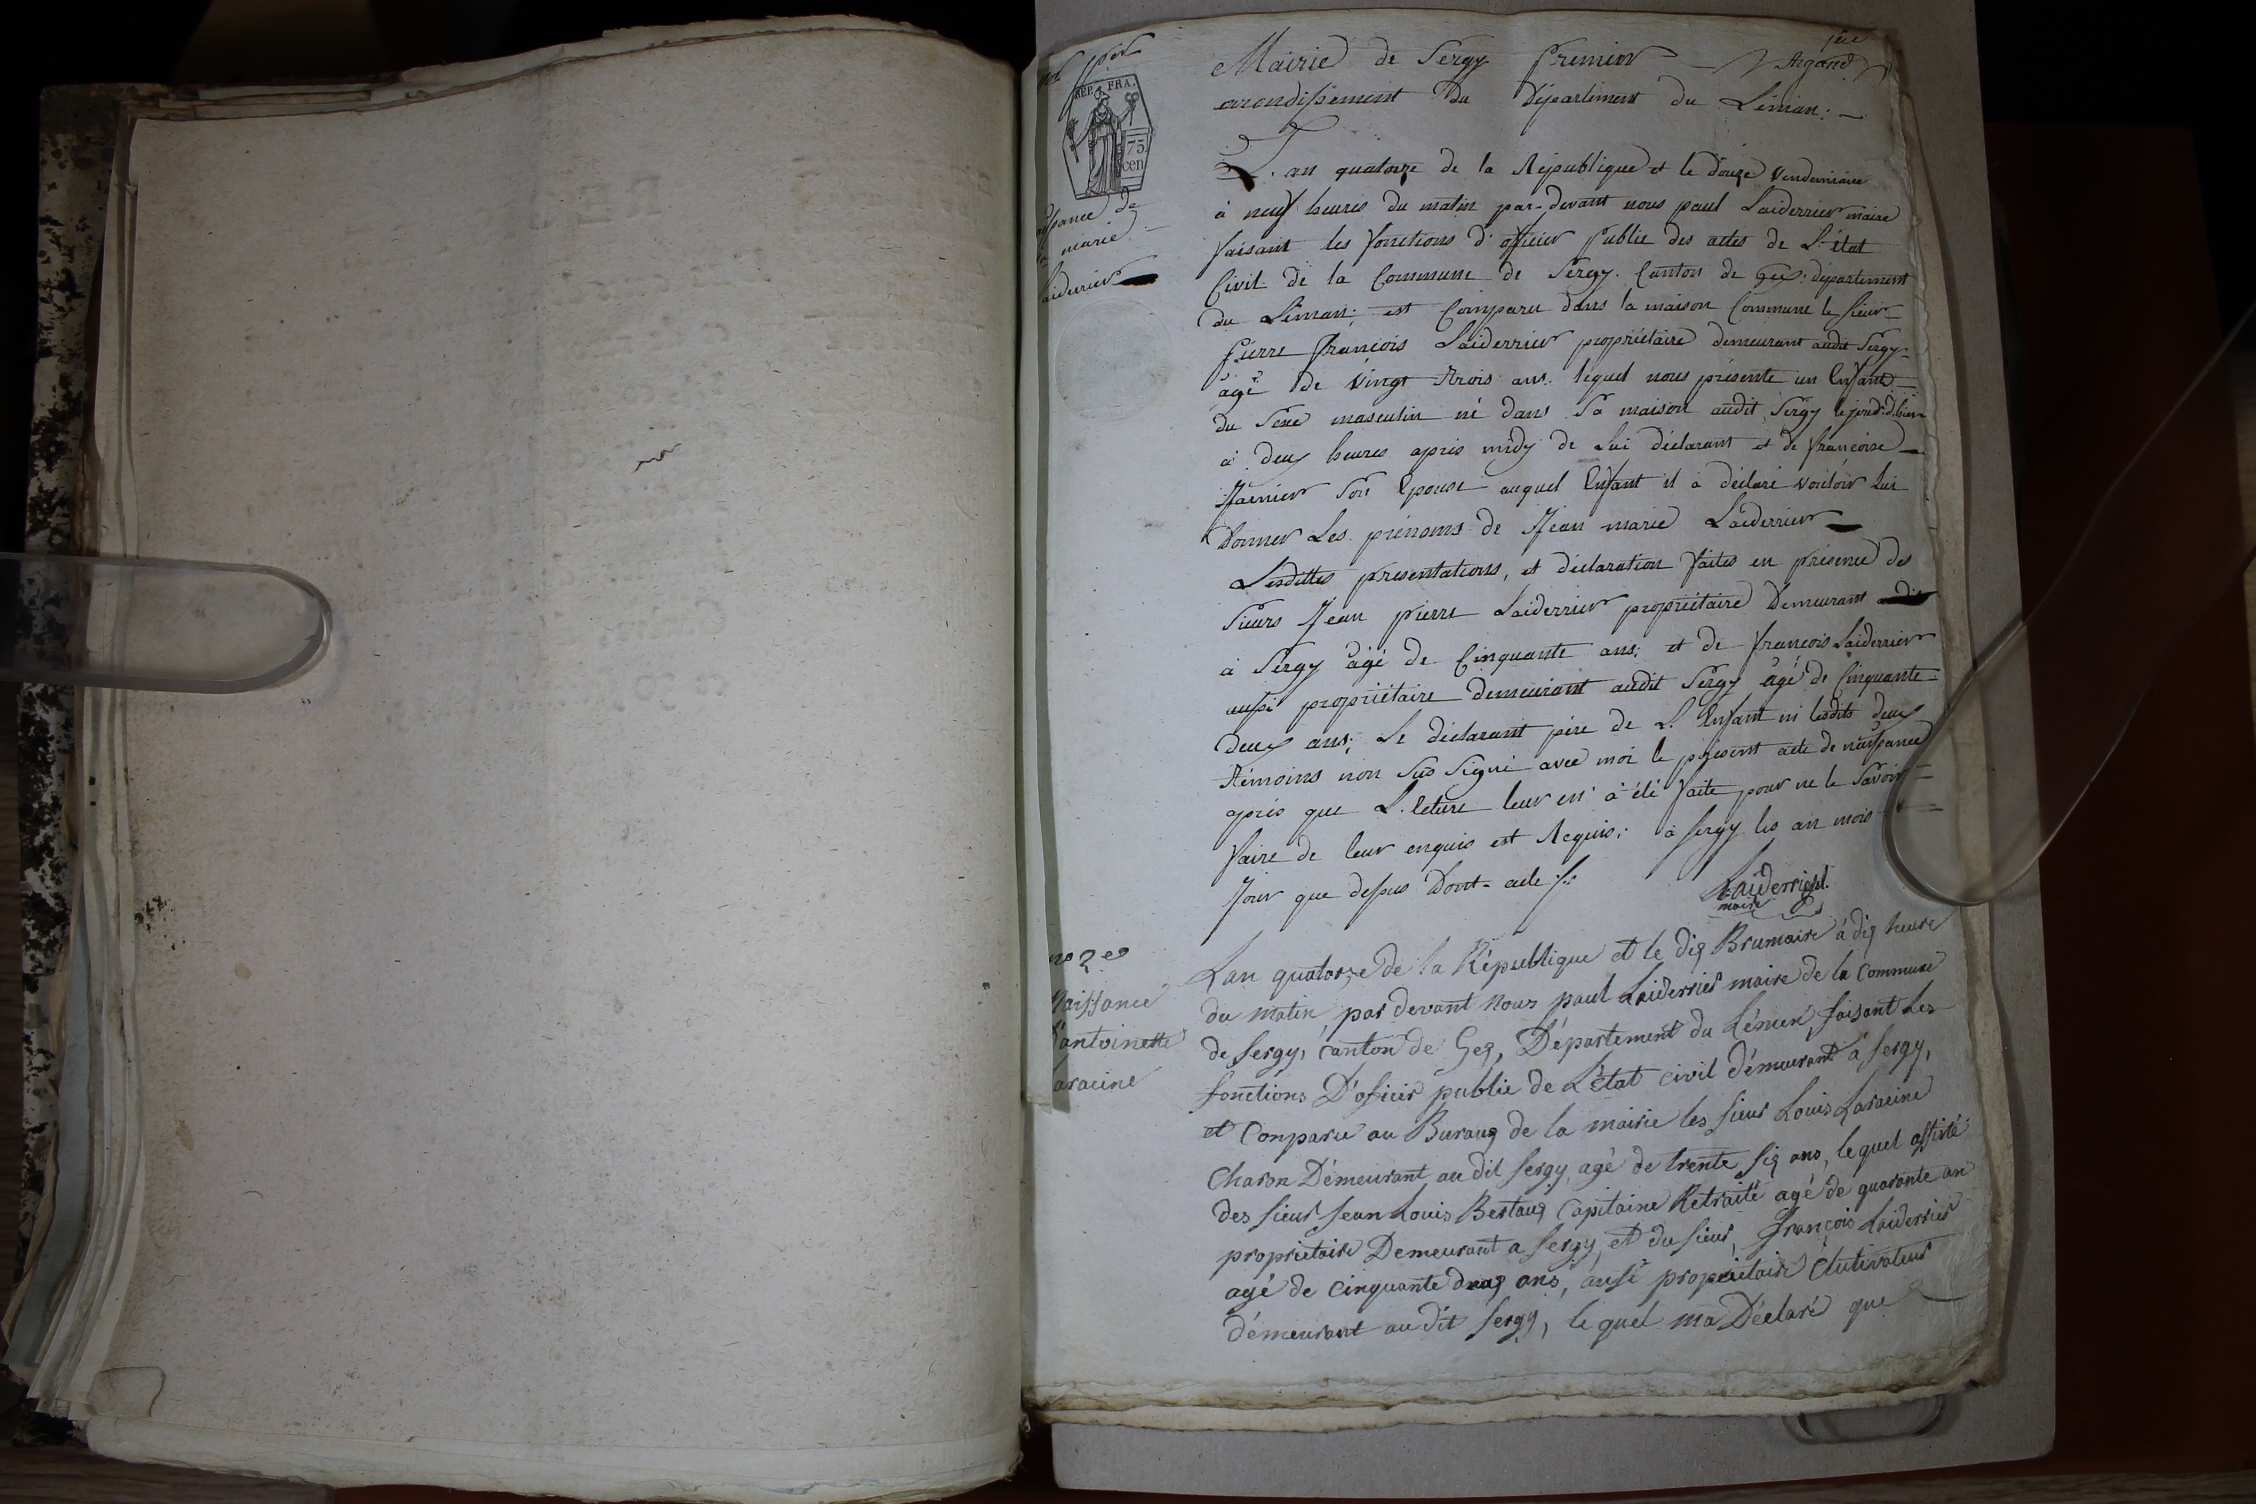 1ere
Mairie de Sergy Premier Argand
arondissement du Département du Léman.
REP. FRA.
75
cen
L'an quatorze de la République et le douze vendemiaire
à neuf heures du matin par-devant nous paul Laiderrier maire
faisant les fonctions d'officier Public des actes de L'état
Civil de la Commune de Sergy. Canton de Gex. département
du Léman; est Comparu dans la maison Commune le sieur
pierre françois Laiderrier propriétaire demeurant audit Sergy
âgé de vingt trois ans. lequel nous présente un Enfant
du Sexe masculin né dans sa maison audit Sergy le
à deux heures après midy de Lui déclarant et de françoise
son Epouse auquel Enfant il a déclaré vouloir Lui
Donner Les prénoms de Jean marie Laiderrier
Lesdittes presentations, et déclaration faites en présence des
sieurs Jean pierre Laiderrier propriétaire Demeurant
à Sergy âgé de Cinquante ans; et de françois Laiderrier
aussi propriétaire demeurant audit Sergy âgé de Cinquante
deux ans; Le déclarant père de L'Enfant ni lesdits deux
témoins non sus signé avec moi le présent acte de naissance
après que L. leture leur en a été faite pour ne le savoir
faire de leur enquis est Requis; à sergy les an mois
Jour que dessus Dont-acte
Laiderrier
maire
naissance de
marie
Laiderrier
no 2e
Naissance
d'antoinette
Laracine
Lan quatorze de la République et le dix Brumaire à dix heure
du matin par devant nous paul Laiderrier maire de la commune
de Sergy, canton de Gex, Département du Léman, faisant Les
fonctions D'oficier publie de L'état civil démeurant à sergy,
et Conparu au Buraux de la mairie les sieur Louis Laracine
Charon Démeurant au dit Sergy, agé de trente six ans, lequel assisté
des sieur Jean Louis Bertaux Capitaine Retraité agé de quarante an
propriétaire Demeurant a Sergy, et du sieur, François Laiderrier
agé de cinquante deux ans, ausi propriétaire Cultivateur
démeurant au dit Sergy, le quel ma Déclaré que